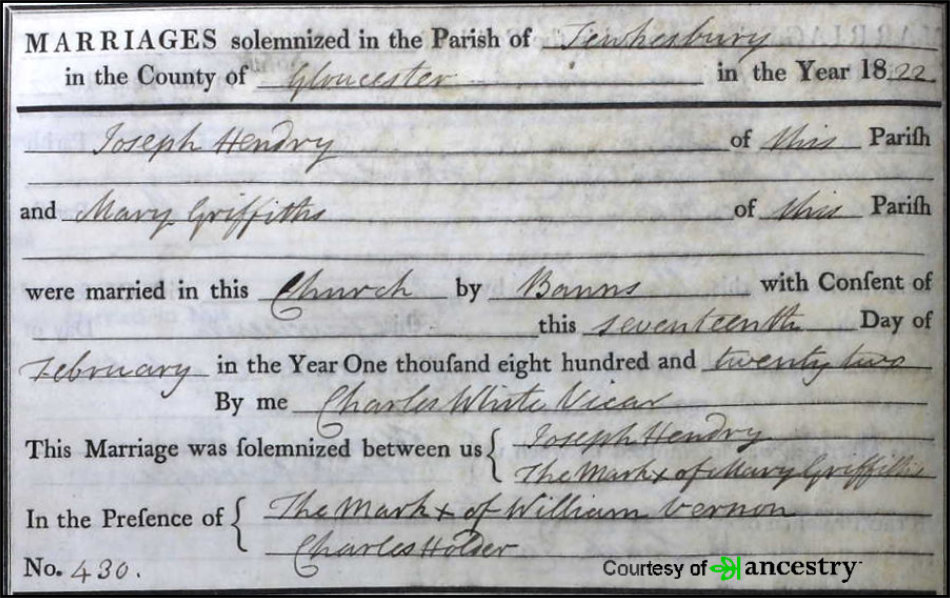 MARRIAGES solemnized in the Parish of Tewkesbury
in the County of Gloucester in the Year 1822
Joseph Hendry of this Pariſh
and Mary Griffiths of this Pariſh
were married in this Church by Banns with Conſent of
this seventeenth Day of
February in the Year One thouſand eight hundred and twenty two
By me Charles White Vicar
This Marriage was ſolemnized between us { Joseph Hendry
The Mark x of Mary Griffiths
In the Preſence of { The Mark x of William Vernon
Charles Holder
No. 430.
Courtesy of ancestry